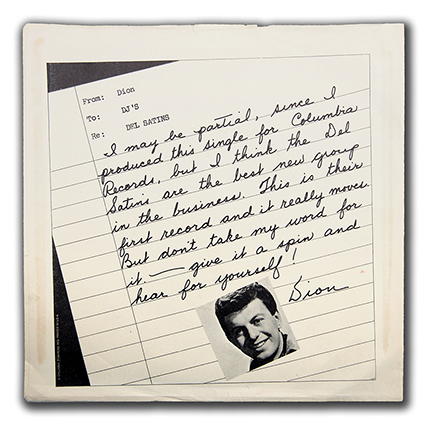 From: Dion
To: DJ'S
Re: DEL SATINS
I may be partial, since I
produced this single for Columbia
Records, but I think the Del
Satins are the best new group
in the business. This is their
first record and it really moves.
But don't take my word for
it. — give it a spin and
hear for yourself!
Dion